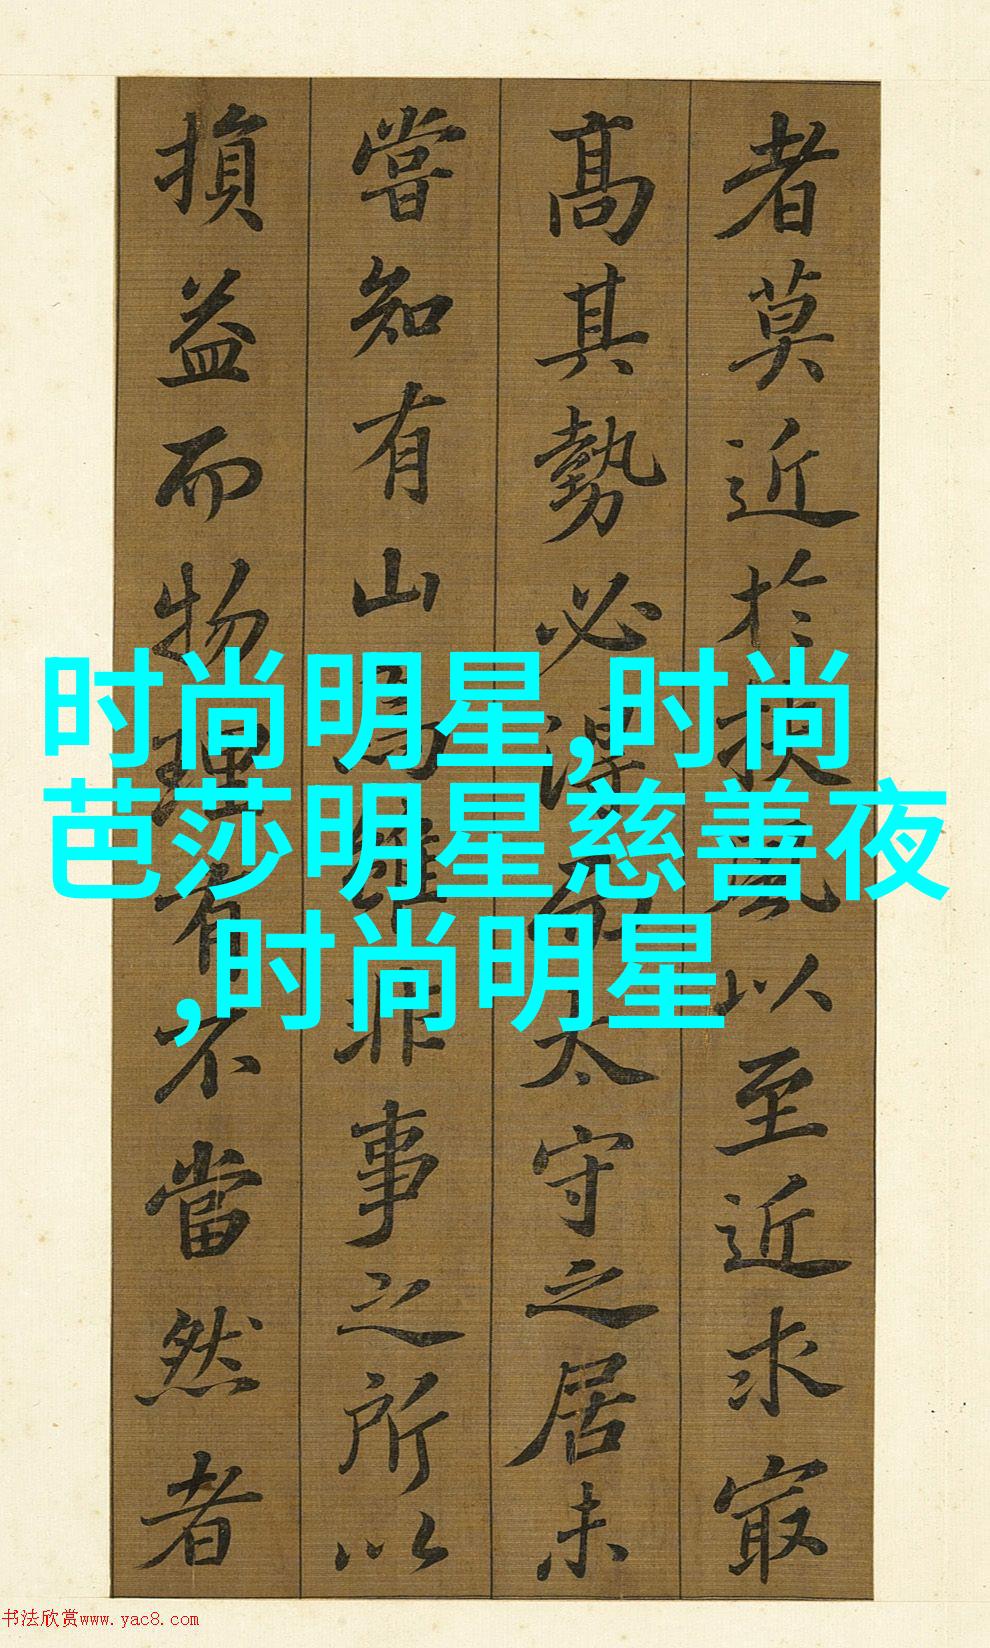 者莫近於扶風以至近求㝡
高其勢必得而太守之居未
嘗知有山焉雖非事之所以
損益而物理有不當然者
时尚明星,时尚
芭莎明星慈善夜
,时尚明星
书法欣赏www.yac8.com